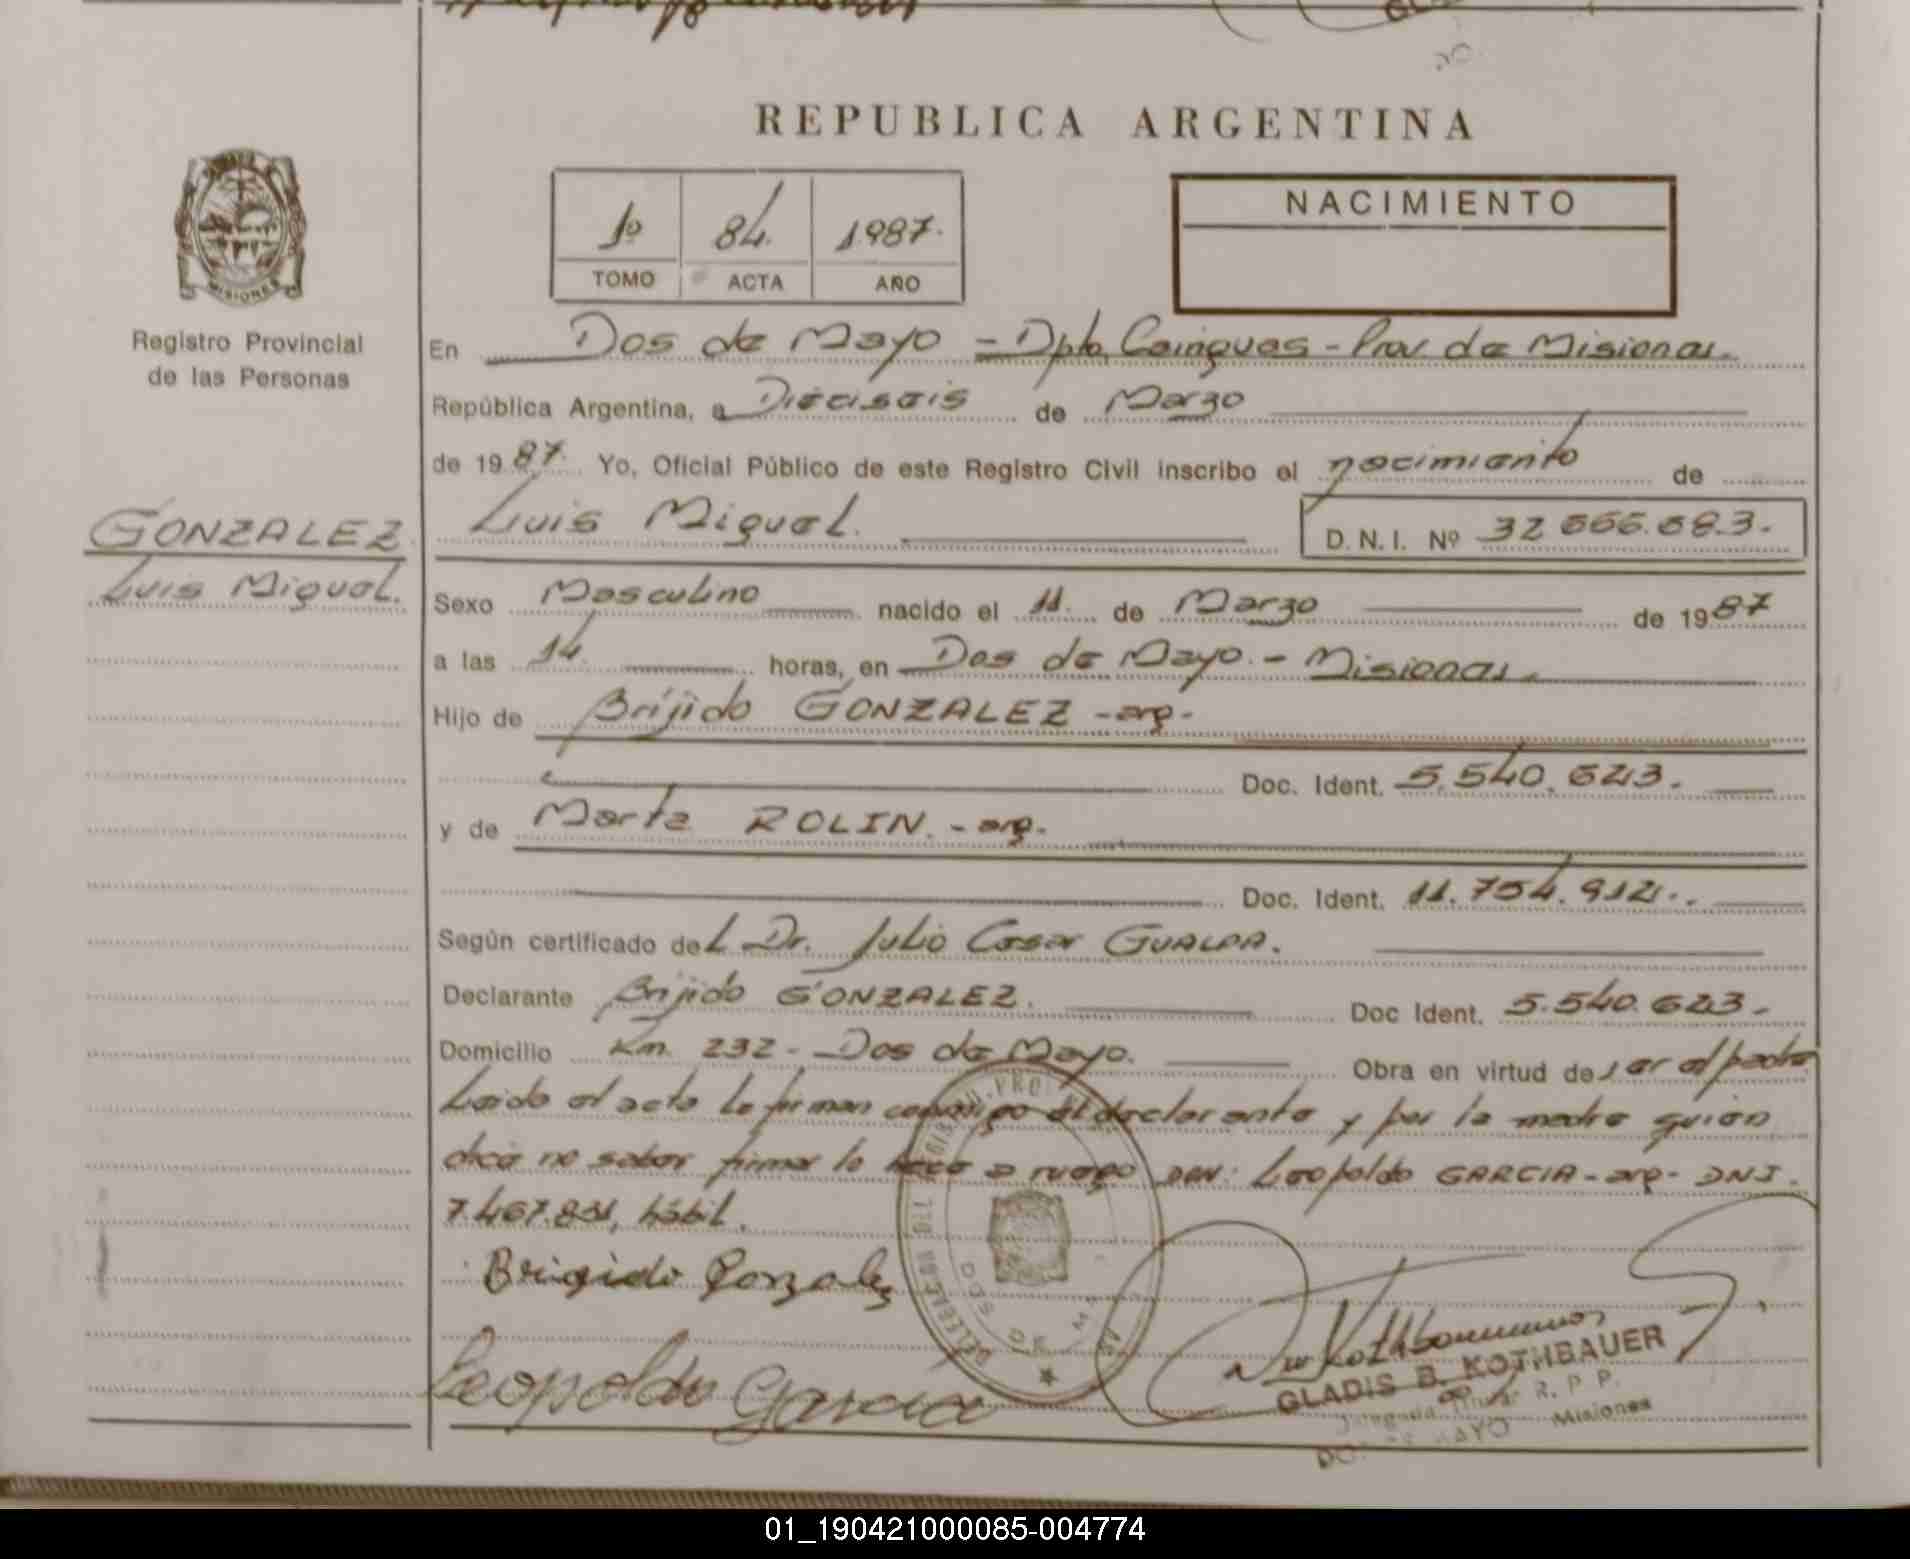 REPUBLICA ARGENTINA
1º 84. 1987.
TOMO ACTA AÑO
NACIMIENTO
MISIONES
Registro Provincial
de las Personas
En Dos de Mayo - Dpto. Cainguas - Prov de Misiones.
República Argentina, a Dieciseis de Marzo
de 1987. Yo, Oficial Público de este Registro Civil inscribo el nacimiento de
GONZALEZ
Luis Miguel.
Luis Miguel. D.N.I. Nº 32 666.683.
Sexo Masculino nacido el 11. de Marzo de 1987
a las 14. horas, en Dos de Mayo. - Misiones.
Hijo de Bríjido GONZALEZ - arg -
Doc. Ident. 5.540.643.
y de Marta ROLIN. - arg.
Doc. Ident. 11.754.914.
Según certificado del Dr. Julio Cesar GUALPA.
Declarante Bríjido GONZALEZ. Doc Ident. 5.540.643.-
Domicilio Km. 232 - Dos de Mayo. Obra en virtud de ser el padre
Leida el acta la firman conmigo el declarante y por la madre quien
dice no saber firmar lo hace a ruego Leopoldo GARCIA - arg - DNI.
7.467.831, hábil.
Brigido Gonzalez
Leopoldo Garcia
GLADIS B. KOTHBAUER
Titular R. P. P.
MAYO Misiones
01_190421000085-004774